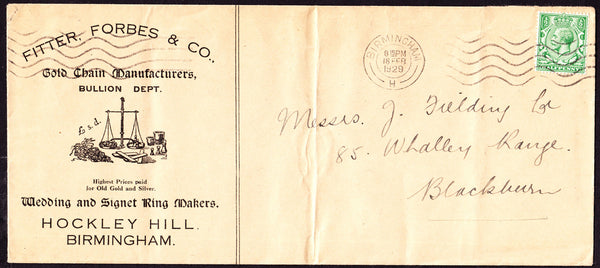 FITTER, FORBES & CO.,
Gold Chain Manufacturers,
BULLION DEPT.
£ s. d.
Highest Prices paid
for Old Gold and Silver.
Wedding and Signet Ring Makers.
HOCKLEY HILL.
BIRMINGHAM.
BIRMINGHAM
PM
18 FEB
1929
H
Messrs. J. Fielding Co
85. Whalley Range.
Blackburn